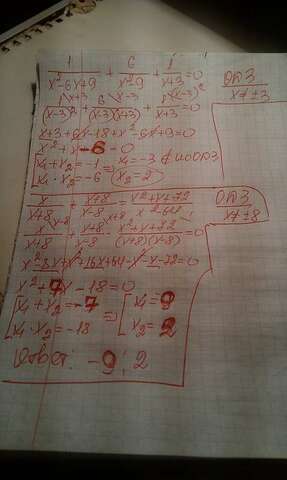 1/(x²-6x+9) + 6/(x²-9) + 1/(x+3) = 0 ОДЗ x≠±3
1/(x-3)² + 6/(x-3)(x+3) + 1/(x+3) = 0
x+3+6x-18+x²-6x+9=0
x²+x-6=0
x₁+x₂=-1 => x₁=-3 ∉ по ОДЗ
x₁·x₂=-6 x₂=2
x/(x+8) + (x+8)/(x-8) = (x²+x+72)/(x²-64) ОДЗ x≠±8
x/(x+8) + (x+8)/(x-8) - (x²+x+72)/((x+8)(x-8)) = 0
x²-8x+x²+16x+64-x²-x-72=0
x²+7x-18=0
x₁+x₂=-7 => x₁=9
x₁·x₂=-18 x₂=2
Ответ: -9; 2